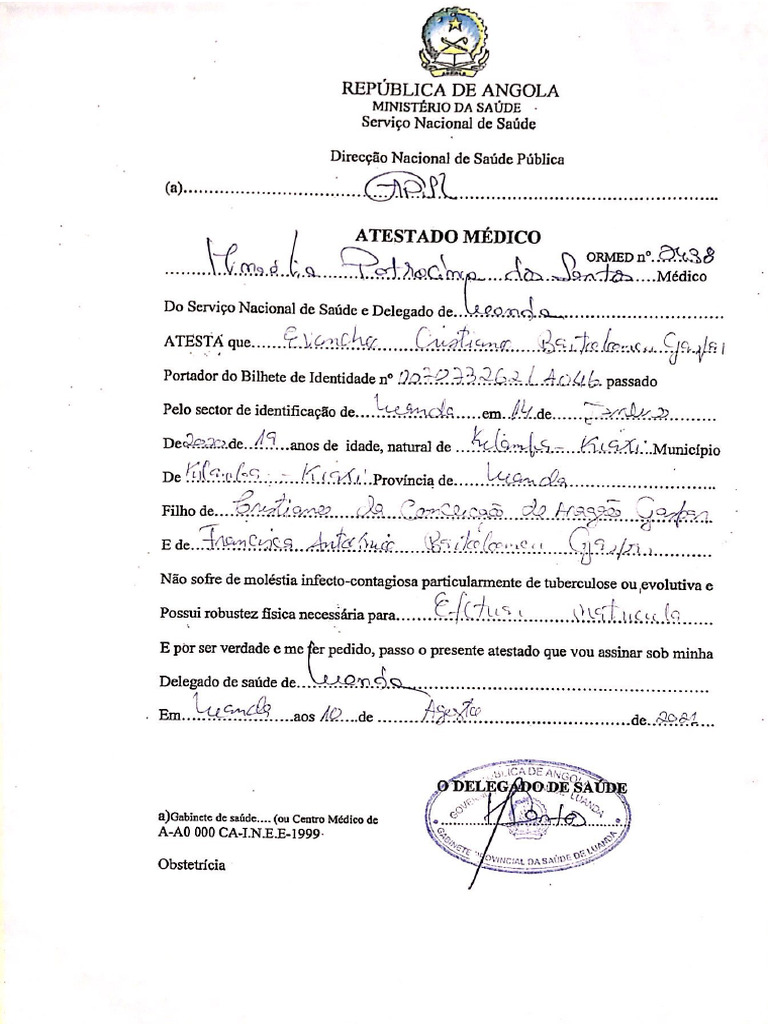 REPÚBLICA DE ANGOLA
MINISTÉRIO DA SAÚDE
Serviço Nacional de Saúde
Direcção Nacional de Saúde Pública
(a)
ATESTADO MÉDICO
ORMED nº 2438
Patrocínio dos Santos Médico
Do Serviço Nacional de Saúde e Delegado de Luanda
ATESTA que Cristiano Bartolomeu Gaspar
Portador do Bilhete de Identidade nº passado
Pelo sector de identificação de Luanda em 14 de Janeiro
De 2020 de 19 anos de idade, natural de Kilamba - Kiaxi Município
De Kilamba - Kiaxi Província de Luanda
Filho de Cristiano da Conceição de Aragão Gaspar
E de Francisca António Bartolomeu Gaspar
Não sofre de moléstia infecto-contagiosa particularmente de tuberculose ou evolutiva e
Possui robustez física necessária para Efctuar matricula
E por ser verdade e me ser pedido, passo o presente atestado que vou assinar sob minha
Delegado de saúde de Luanda
Em Luanda aos 10 de Agosto de 2021
O DELEGADO DE SAÚDE
GABINETE PROVINCIAL DA SAÚDE DE LUANDA
a)Gabinete de saúde.... (ou Centro Médico de
A-A0 000 CA-I.N.E.E-1999
Obstetrícia